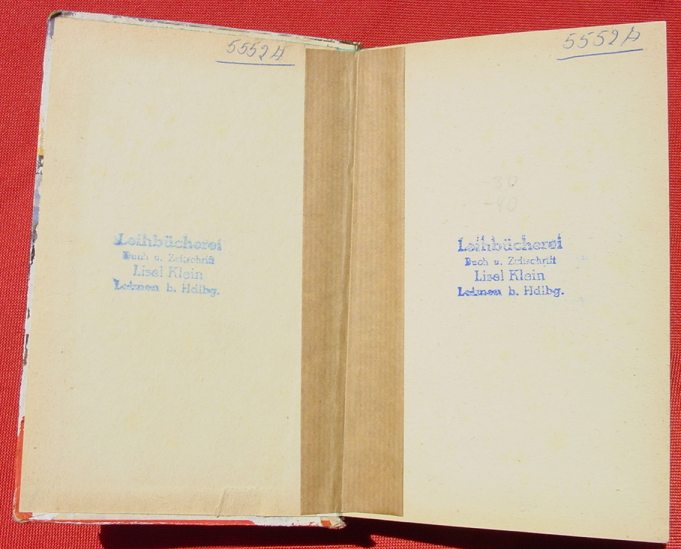 5552 A
Leihbücherei
Buch u. Zeitschrift
Lisel Klein
Leimen b. Hdlbg.
5552 A
30
-40
Leihbücherei
Buch u. Zeitschrift
Lisel Klein
Leimen b. Hdlbg.